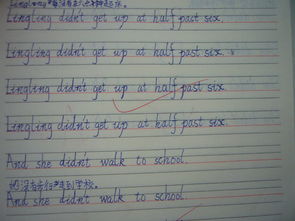 Lingling didn't get up at half past six.
Lingling didn't get up at half past six.
Lingling didn't get up at half past six.
Lingling didn't get up at half past six.
And she didn't walk to school.
她没有步行走到学校。
And she didn't walk to school.